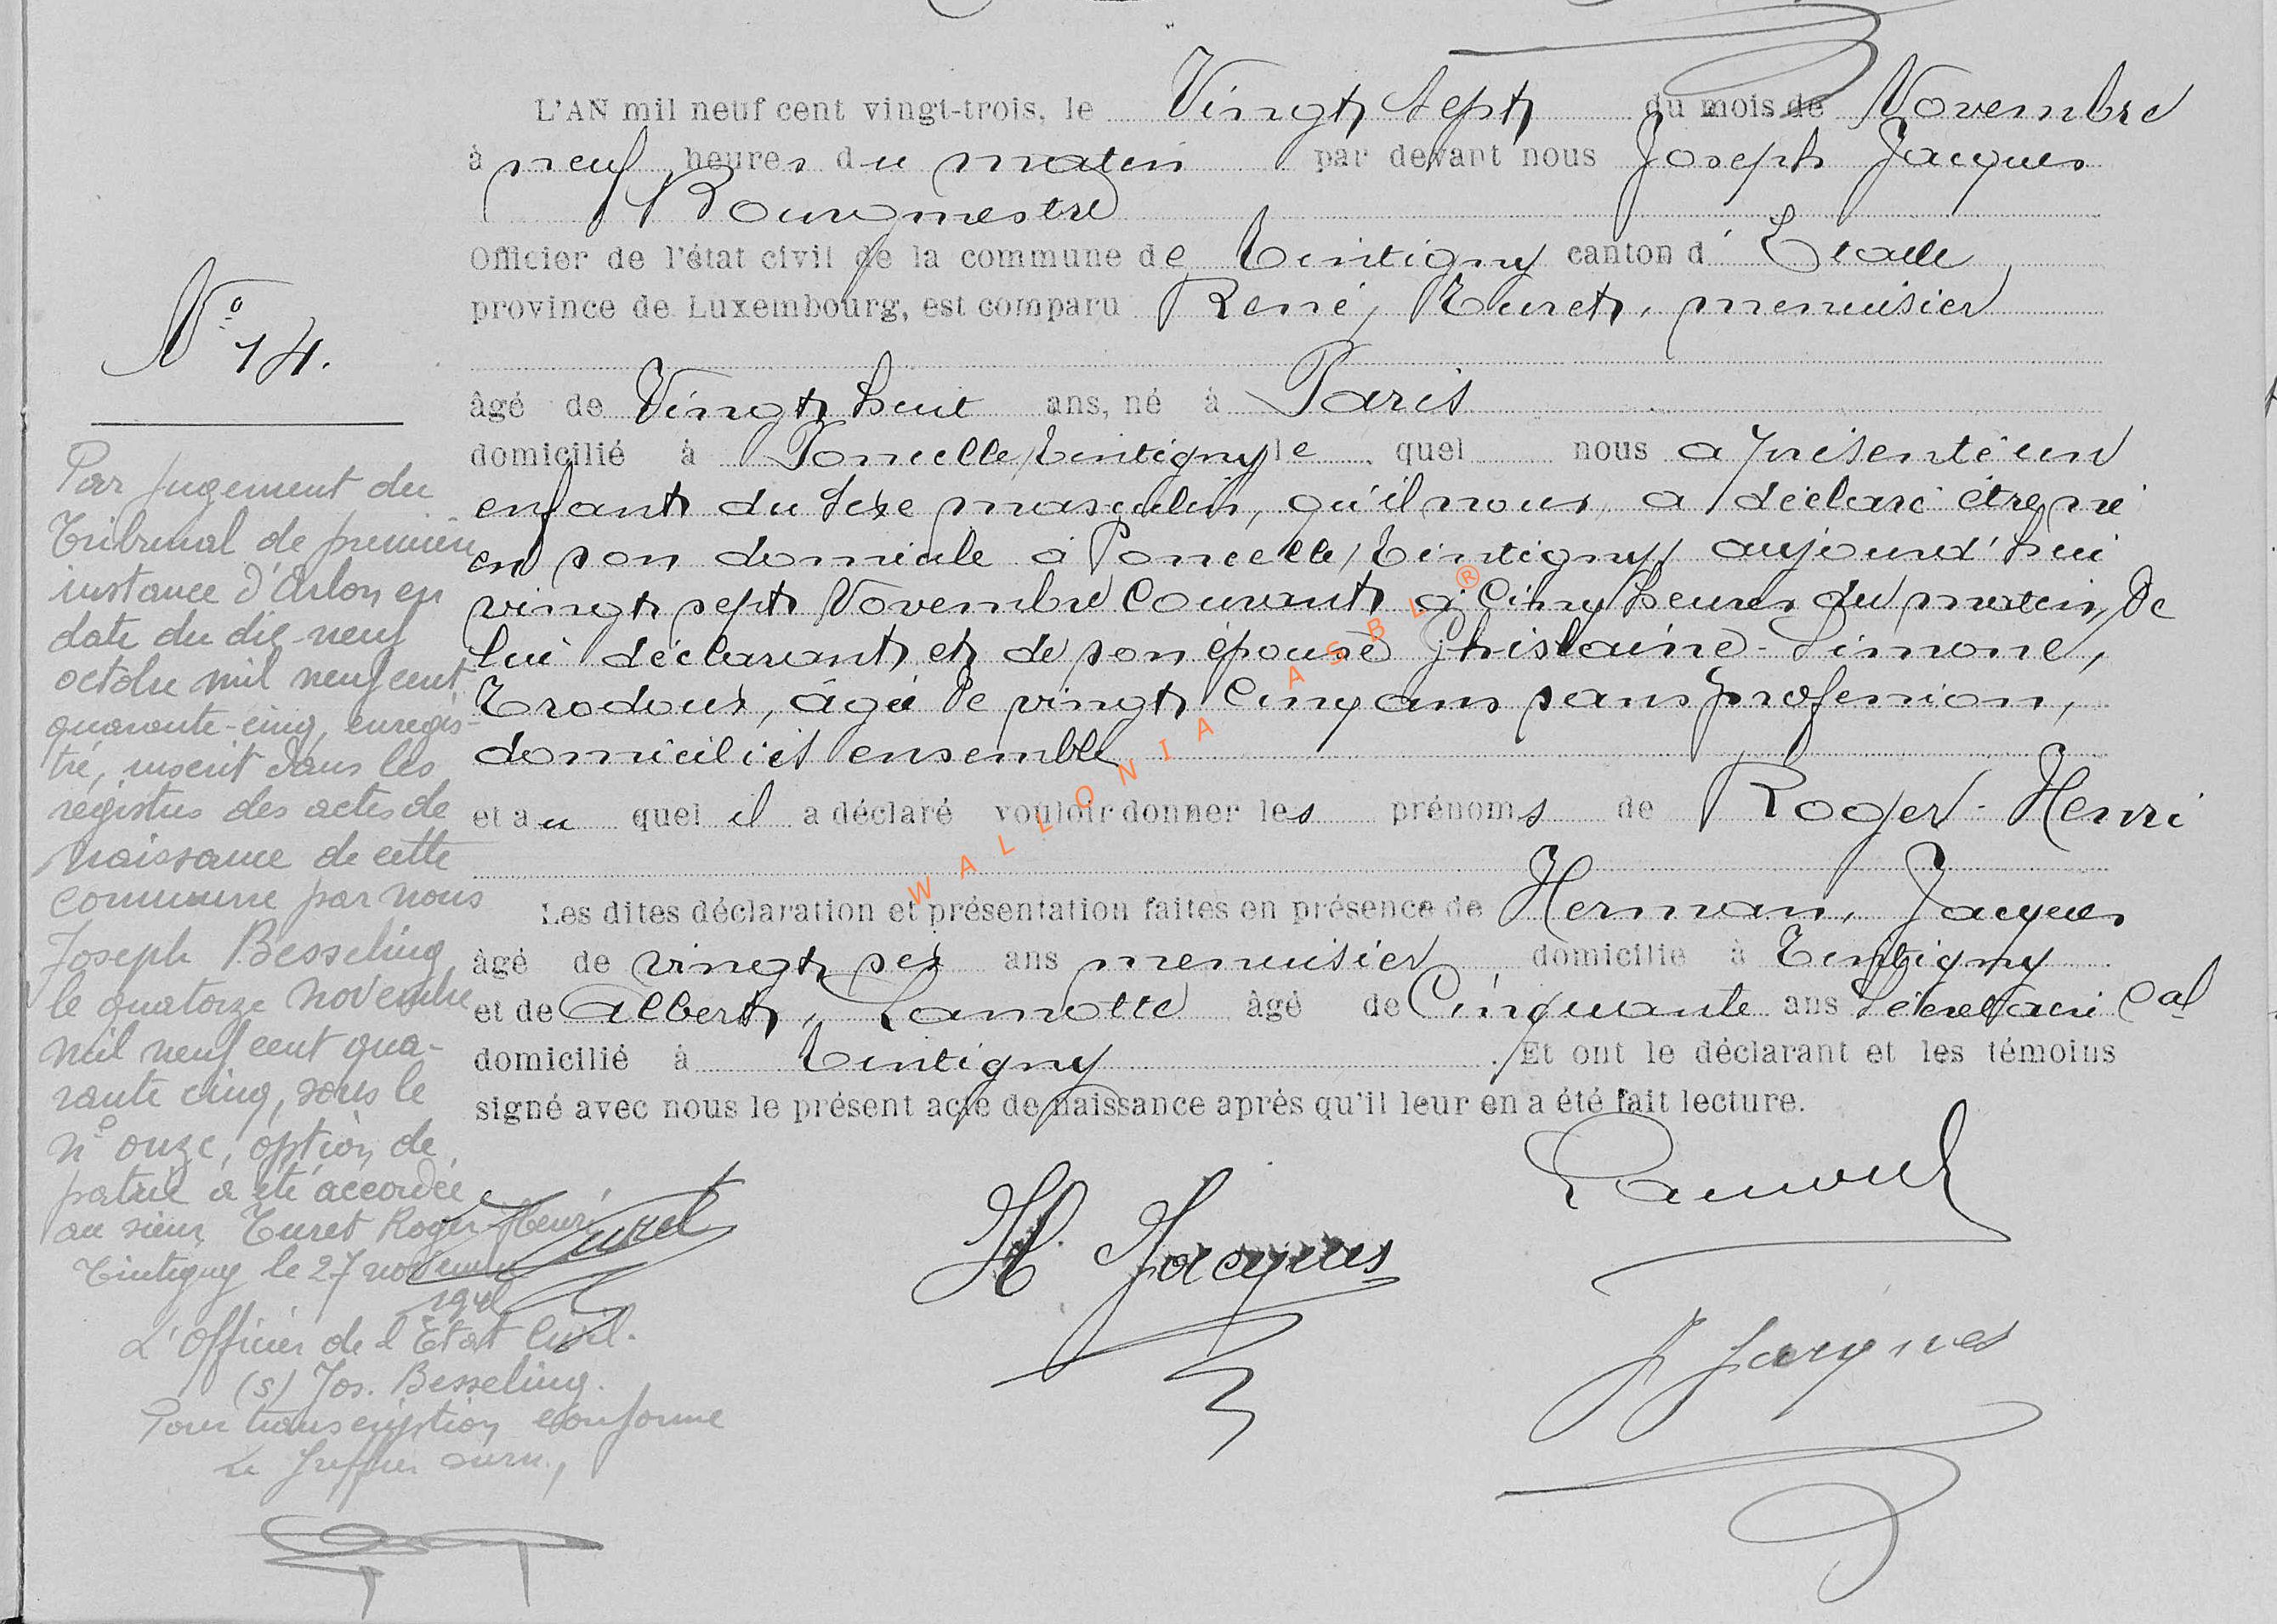 L'AN mil neuf cent vingt-trois, le Vingt sept du mois de Novembre
à neuf heures du matin par devant nous Joseph Jacques
Bourgmestre
Officier de l'état civil de la commune de Tintigny canton d' Etalle,
province de Luxembourg, est comparu René, Turet, menuisier
âgé de Vingt huit ans, né à Paris
domicilié à Poncelle/Tintigny le quel nous a présenté un
enfant du sexe masculin, qu'il nous a déclaré être né
en son domicile à Poncelle/Tintigny, aujourd'hui
vingt sept Novembre Courant à Cinq heures du matin, de
lui déclarant et de son épouse Ghislaine-Simone,
Trodoux, âgée de vingt Cinq ans sans profession,
domiciliés ensemble
et au quel il a déclaré vouloir donner les prénoms de Roger-Henri
Les dites déclaration et présentation faites en présence de Herman, Jacques
âgé de vingt six ans menuisier, domicilié à Tintigny
et de Albert, Lamotte âgé de Cinquante ans Secrétaire Cal
domicilié à Tintigny. Et ont le déclarant et les témoins
signé avec nous le présent acte de naissance après qu'il leur en a été fait lecture.
Turet
H. Jacques
J Jacques
No 14.
Par jugement du
Tribunal de première
instance d'Arlon en
date du dix-neuf
octobre mil neuf cent
quarante-cinq, enregis-
tré, inscrit dans les
registres des actes de
naissance de cette
commune par nous
Joseph Besseling
le quatorze novembre
mil neuf cent qua-
rante cinq, sous le
no onze, option de
patrie a été accordée
au sieur Turet Roger-Henri
Tintigny le 27 novembre
L'Officier de l'Etat Civil.
(s) Jos. Besseling.
Pour transcription conforme
Le Greffier
WALLONIA ASBL ®